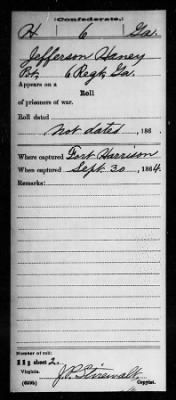 (Confederate.)
H 6 Ga.
Jefferson Haney
Pvt, 6 Regt, Ga.
Appears on a
Roll
of prisoners of war.
Roll dated
Not dated, 186 .
Where captured Fort Harrison
When captured Sept. 30, 1864.
Remarks:
Number of roll:
11; sheet 2
Virginia.
J. P. Stirewalt
Copyist.